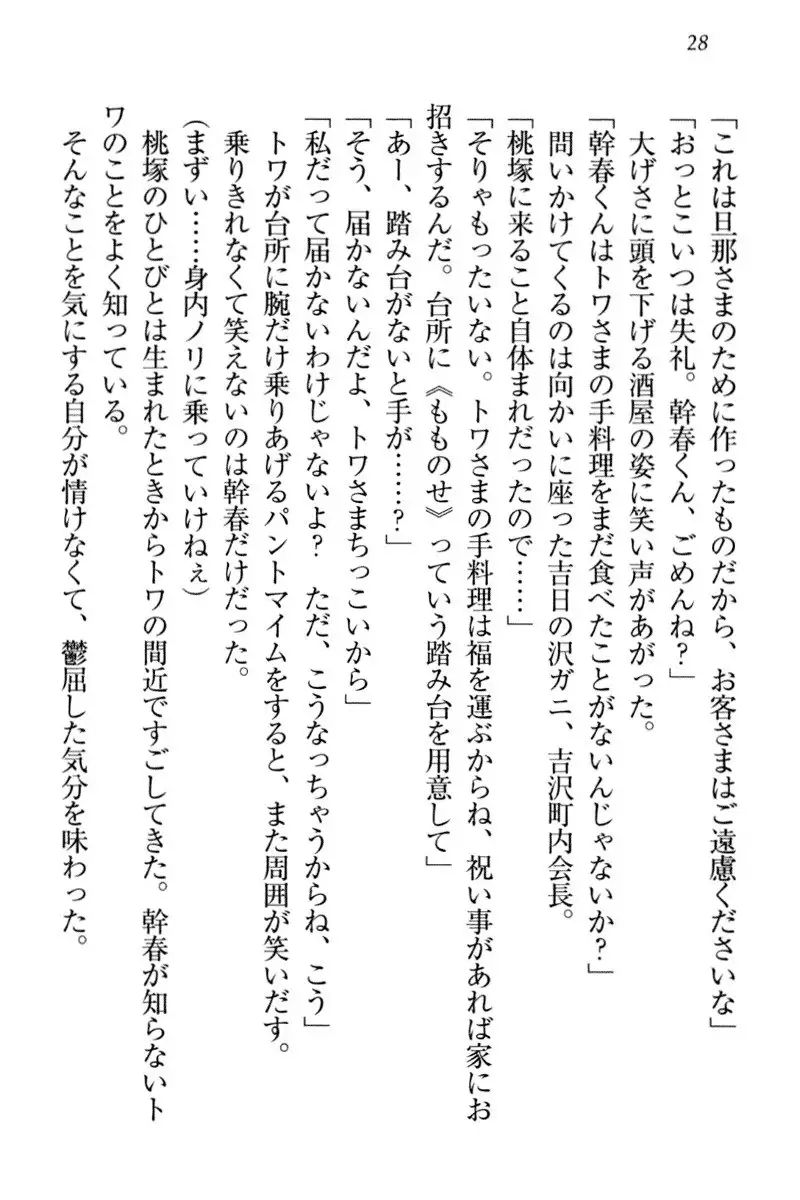 28
「これは旦那さまのために作ったものだから、お客さまはご遠慮くださいな」
「おっとこいつは失礼。幹春くん、ごめんね?」
　大げさに頭を下げる酒屋の姿に笑い声があがった。
「幹春くんはトワさまの手料理をまだ食べたことがないんじゃないか?」
　問いかけてくるのは向かいに座った吉日の沢ガニ、吉沢町内会長。
「桃塚に来ること自体まれだったので……」
「そりゃもったいない。トワさまの手料理は福を運ぶからね、祝い事があれば家にお
招きするんだ。台所に《もものせ》っていう踏み台を用意して」
「あー、踏み台がないと手が……?」
「そう、届かないんだよ、トワさまちっこいから」
「私だって届かないわけじゃないよ?　ただ、こうなっちゃうからね、こう」
　トワが台所に腕だけ乗りあげるパントマイムをすると、また周囲が笑いだす。
　乗りきれなくて笑えないのは幹春だけだった。
(まずい……身内ノリに乗っていけねぇ)
　桃塚のひとびとは生まれたときからトワの間近ですごしてきた。幹春が知らないト
ワのことをよく知っている。
　そんなことを気にする自分が情けなくて、鬱屈した気分を味わった。